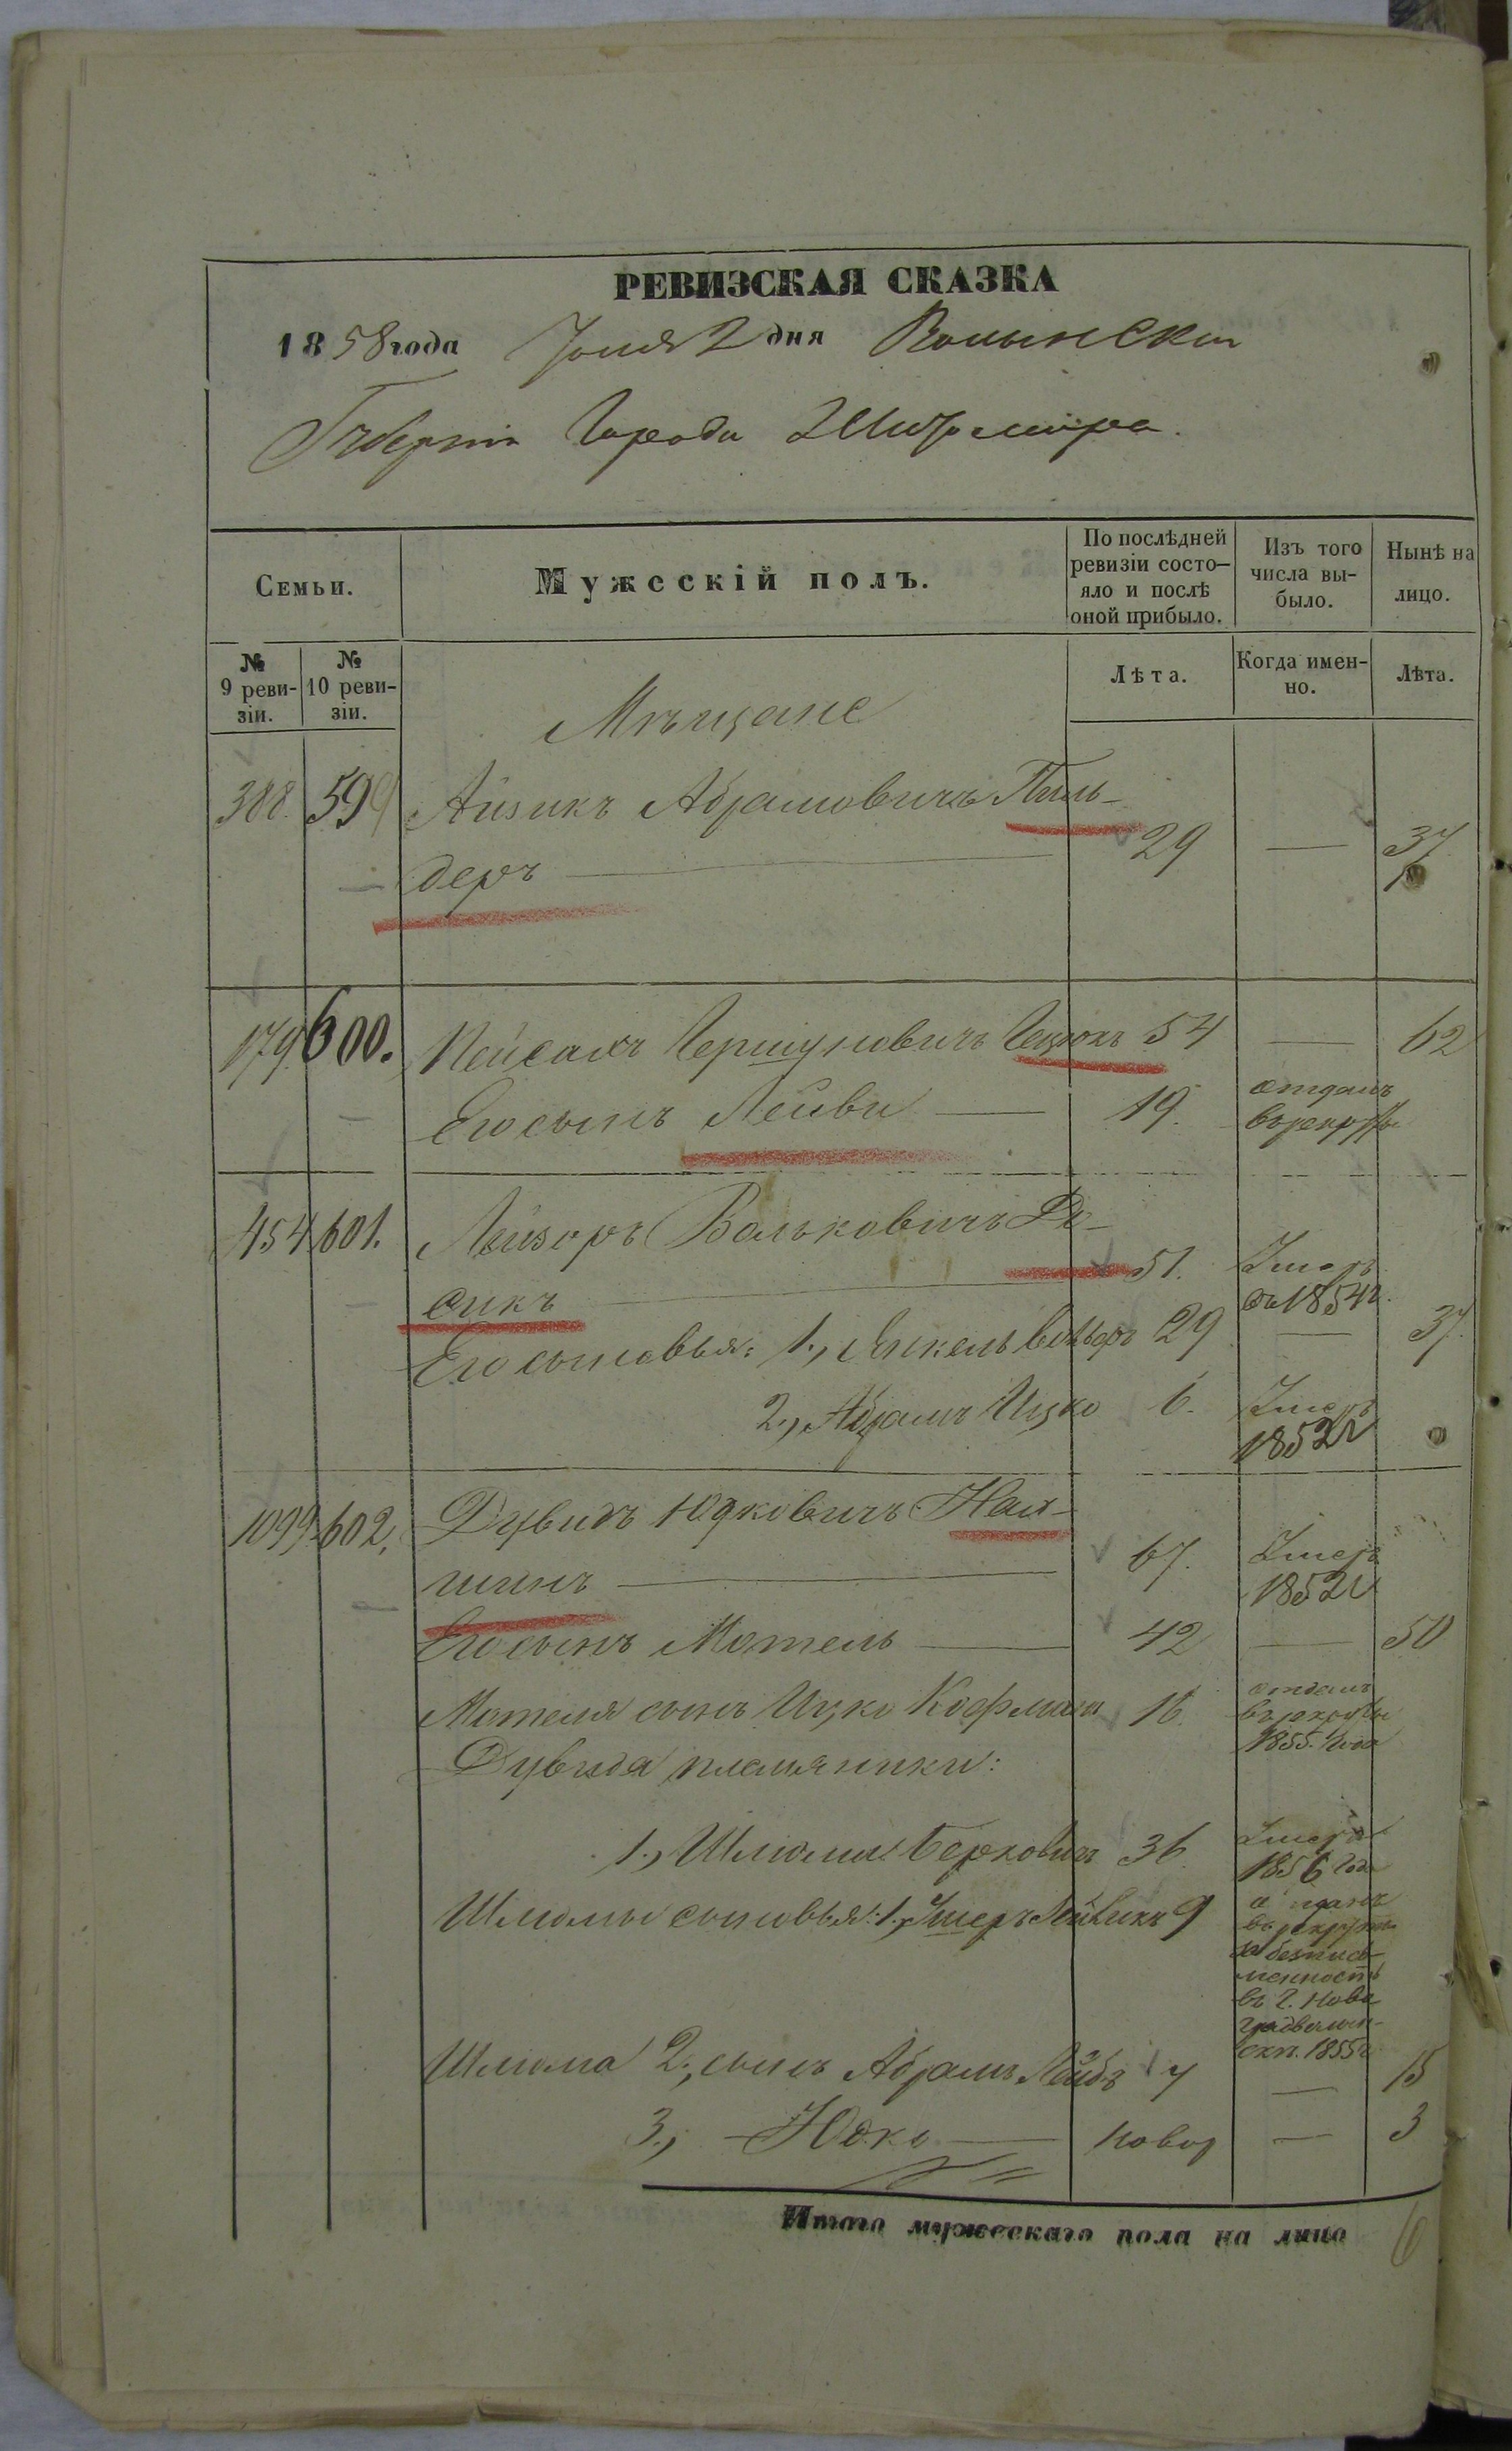 РЕВИЗСКАЯ СКАЗКА
1858 года Іюня 2 дня Волынской
Губерніи Города Житоміра.
Семьи.
Мужескій полъ.
По послѣдней ревизіи состо-яло и послѣ оной прибыло.
Изъ того числа вы-было.
Нынѣ на лицо.
№ 9 реви-зіи.
№ 10 реви-зіи.
Лѣта.
Когда имен-но.
Лѣта.
Мѣщане
388. 599 Айзикъ Абрамовичъ
деръ — 29 — 37
179. 600. Пейсахъ Гершуновичъ 54 — 62
Его сынъ Лейви — 19. отданъ въ рекруты
454 601. Лейзоръ Вольковичъ
сикъ — 51. Умеръ 1854
Его сыновья: 1., Янкель 29 — 37.
2., Абрамъ Ицко 6. Умеръ 1852
1099. 602, Дувидъ Юдковичъ
шинъ — 67. Умеръ 1852
Его сынъ Мотель — 42 — 50
Мотеля сынъ Ицко Кофманъ 16. отданъ въ рекруты 1855. года
Дувида племянники:
1., Шліома Берковичъ 36. Умеръ 1856 года
Шліомы сыновья: 1., Ушеръ Лейвикъ 9 отданъ въ рекруты за безпись-менность въ г. Ново градволын-скѣ. 1855
Шліома 2, сынъ Абрамъ Лейбъ 7 — 15
3., — Юдко — новор — 3
Итого мужескаго пола на лицо 6